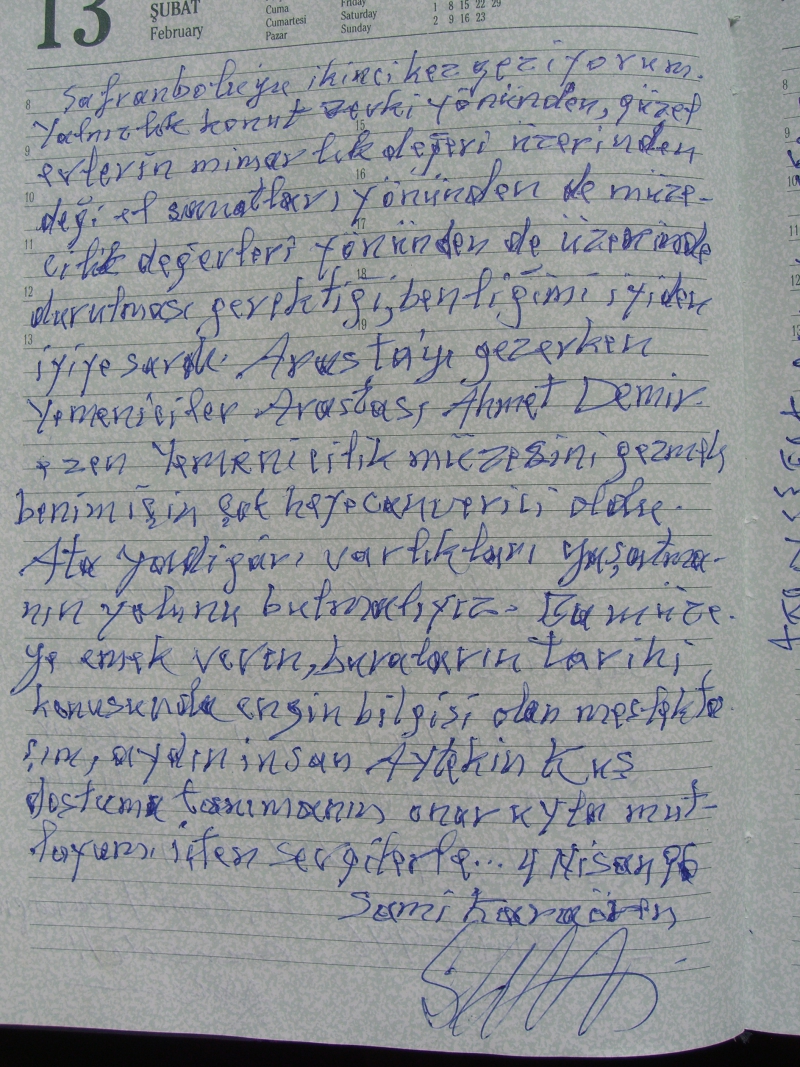 13 ŞUBAT
February
Cuma
Cumartesi
Pazar
Friday
Saturday
Sunday
1 8 15 22 29
2 9 16 23
8
Safranbolu'yu ikinci kez geziyorum.
Yalnızlık konut zevki yönünden, güzel
15
9
evlerin mimarlık değeri üzerinden
16
10
değil el sanatları yönünden de müze-
17
11
cilik değerleri yönünden de üzerinde
18
12
durulması gerektiği, benliğimi iyiden
19
13
iyiye sardı. Arasta'yı gezerken
Yemeniciler Arastası, Ahmet Demir-
ezen Yemenicilik müzesini gezmek
benim için çok heyecan verici oldu.
Ata yadigârı varlıkları yaşatma-
nın yolunu bulmalıyız. Bu müze-
ye emek veren, buraların tarihi
konusunda engin bilgisi olan meslekta-
şım, aydın insan Aytekin Kuş
dostumu tanımanın onuruyla mut-
luyum. içten sevgilerle... 4 Nisan 96
Sami Karaören